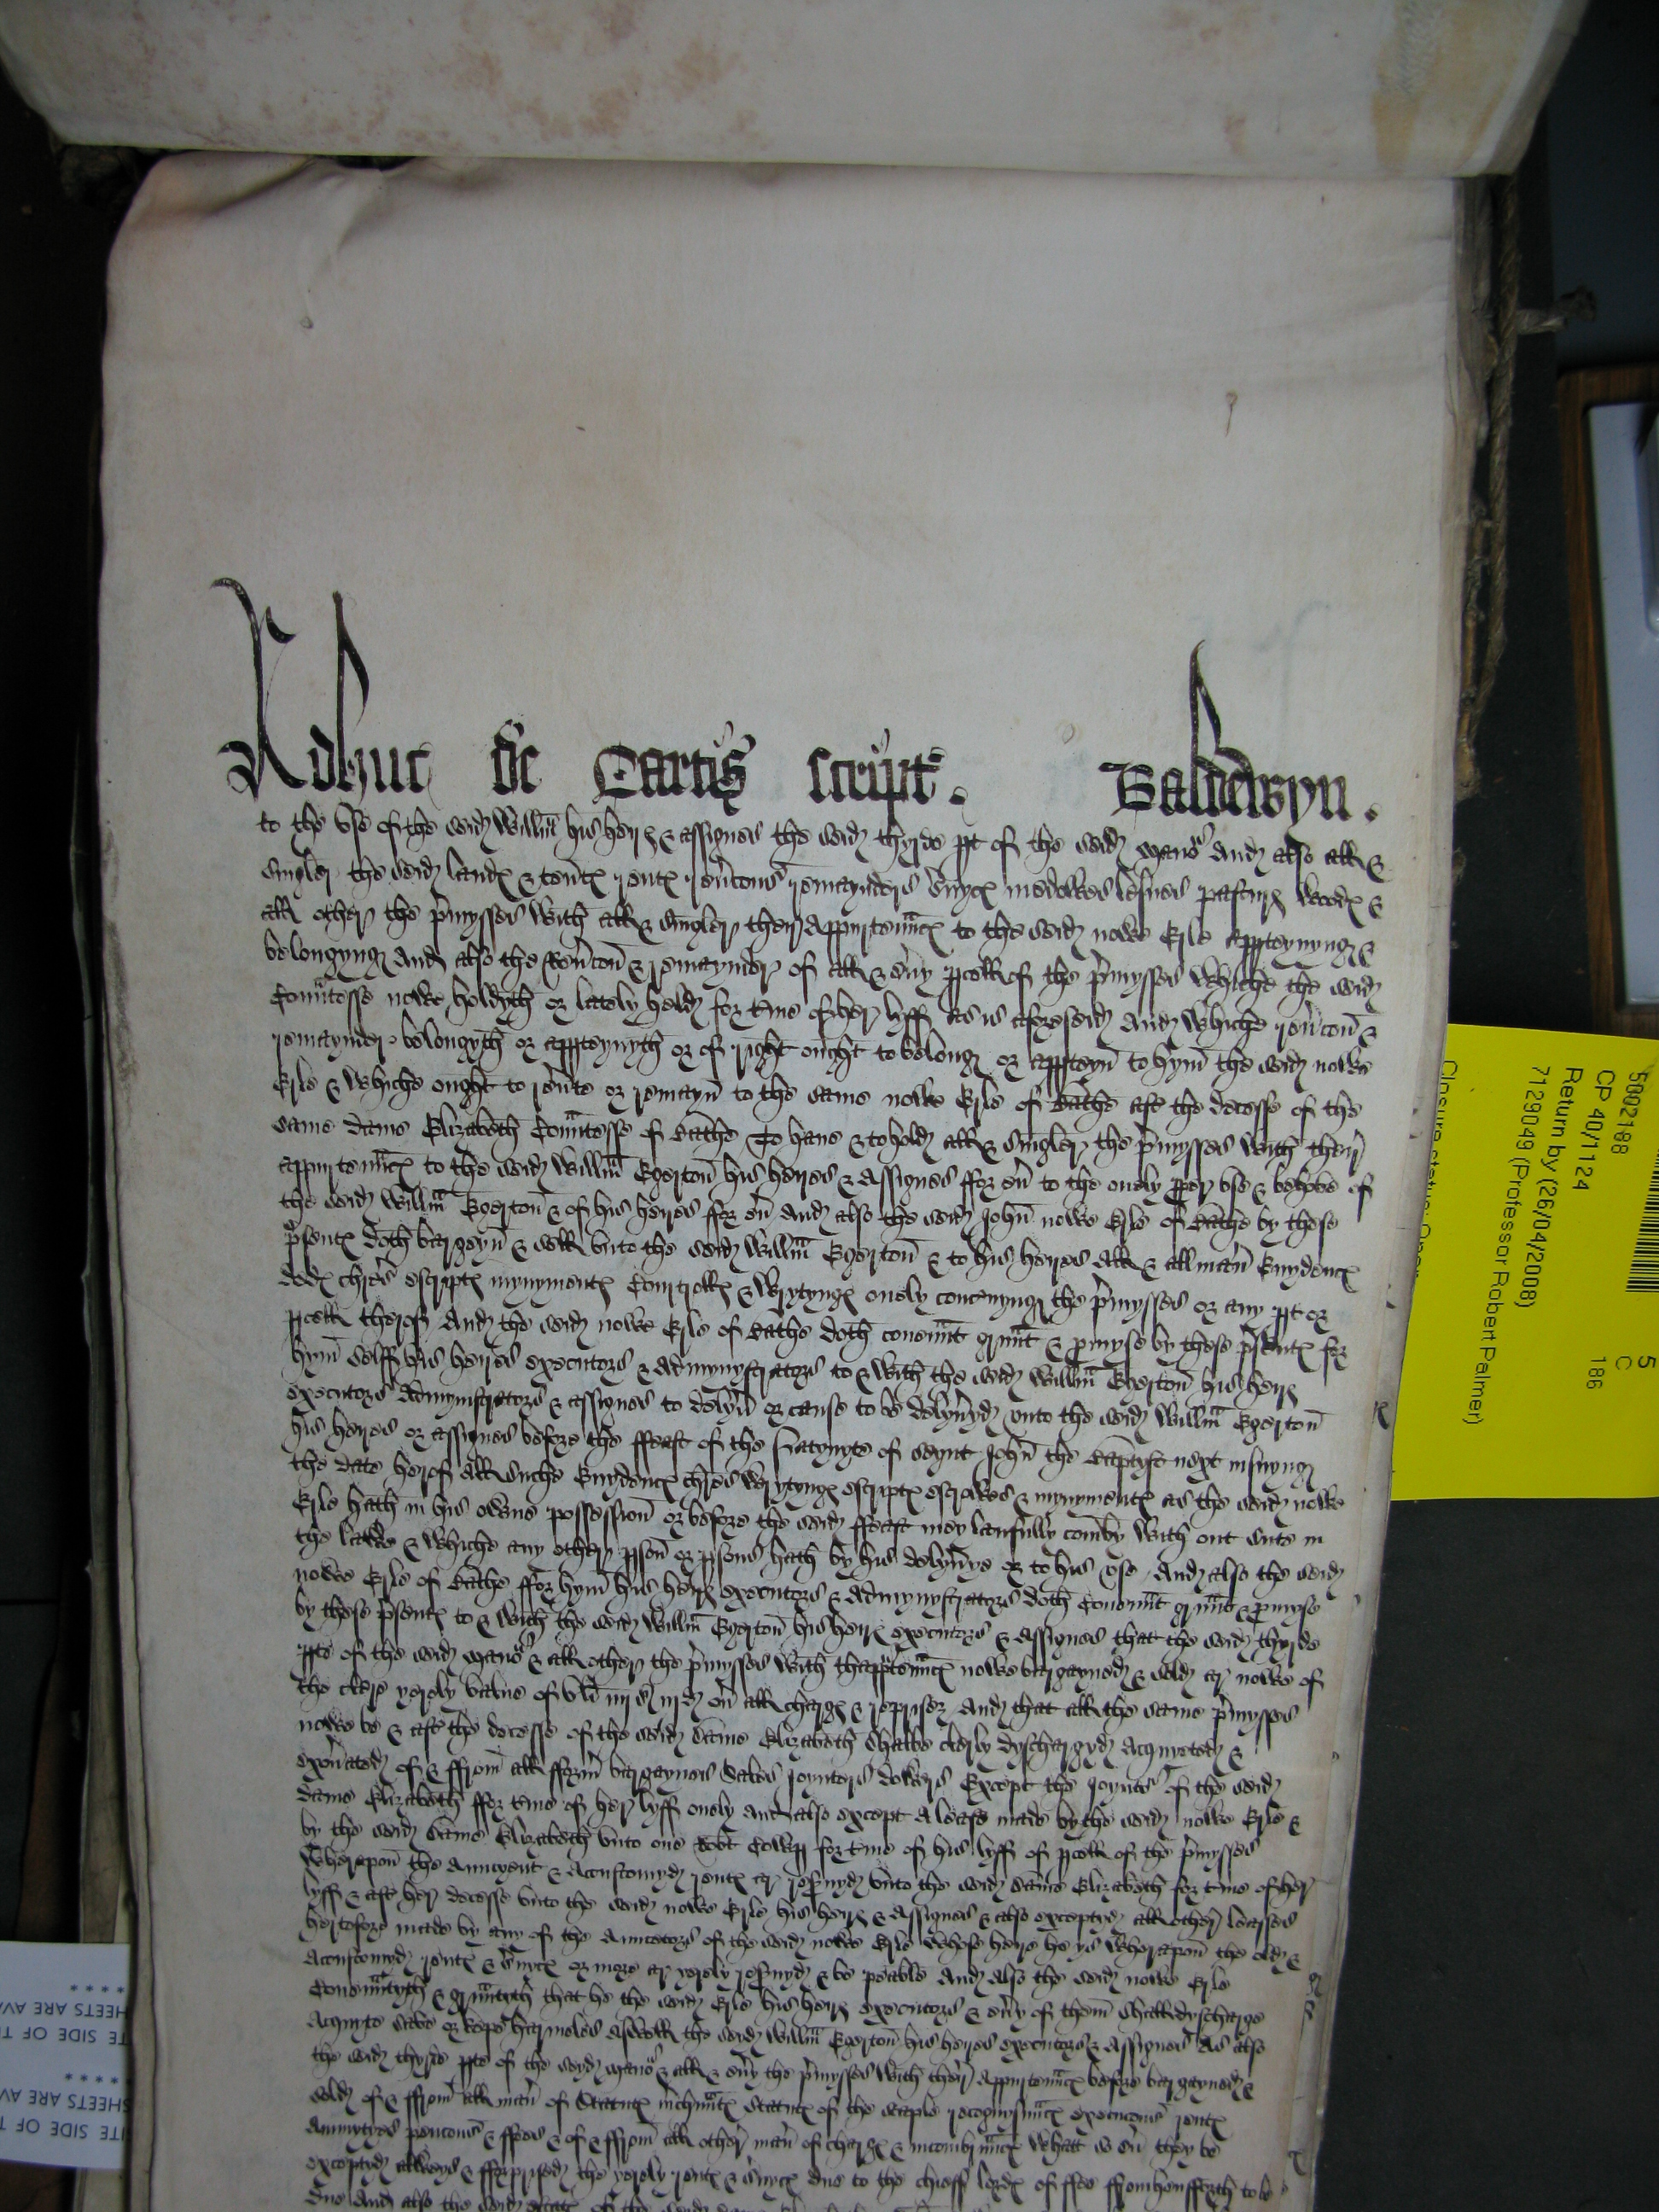 Adhuc de Cartis script. Baldewyn.
to the vse of the seid Willm his heires & assignes the seid thyrde pt of the seid manor And also all &
singler the seid landes & tentes rentes reucons remaynders suyces medowes lesues pastures woodes &
all other the pmysses with all & singler their Appurtennces to the seid nowe Erle apperteynyng &
belongyng And also the Reucon & remaynder of all & euy pcell of the pmysses Whiche the seid
Countesse nowe holdyth or lately held for tme of her lyff as is aforeseid And whiche reucon &
remaynder belongyth or apperteynyth or of right ought to belong or apperteyn to hym the seid nowe
Erle & whiche ought to reute or remayn to the same nowe Erle of Bathe aft the decesse of the
same dame Elizabeth Countesse of Bathe To haue & to hold all & singler the pmysses with their
appurtennces to the seid Willm Egerton his heires & Assignes ffor eu to the onely pper vse & behove of
the seid Willm Egerton & of his heires ffor eu And also the seid John nowe Erle of Bathe by these
psentes doth bargeyn & sell vnto the seid Willm Egerton & to his heires All & all man Euydences
dedes chres escriptes mynymentes Courtrolles & wrytynges onely concernyng the pmysses or any pt or
pcell therof And the seid nowe Erle of Bathe doth couennt grunt & pmyse by these psentes for
hym selff his heires executors & Admynystrators to & with the seid Willm Egerton his heires
executors Admynistrators & assignes to delyu or cause to be delyuyd vnto the seid Willm Egerton
his heires or assignes before the ffeast of the Natyuyte of seynt John the Baptyst next insuyng
the date herof All suche Euydences chres wrytynges escriptes escrowes & mynymentes as the seid nowe
Erle hath in his owne possession or before the seid ffeast mey laufully comby with out sute in
the lawe & whiche any other pson or psons hath by his delyuye or to his vse And also the seid
nowe Erle of Bathe ffor hym his heires executors & Admynystrators doth Couennt grunt & pmyse
by these psentes to & with the seid Willm Egerton his heires executors & Assignes that the seid thyrde
pte of the seid manor & all other the pmysses with thapptennces nowe bargayned & sold ar nowe of
the clere yerely value of vli iijs iiijd ou all charges & reprises And that all the same pmysses
nowe be & aft the decesse of the seid dame Elizabeth shalbe clerly dyschargyd Acquyeted &
exonated of & ffrom all fformr bargaynes sales joyntors dowers Except the joyntr of the seid
dame Elizabeth ffor tme of her lyff onely And also except A lease made by the seid nowe Erle &
by the seid dame Elizabeth vnto one Robt for tme of his lyff of pcell of the pmysses
Wherapon the Auncyent & Accustomyd rentes ar resuyd vnto the seid dame Elizabeth for tme of her
lyff & aft her decesse vnto the seid nowe Erle his heires & Assignes & also exceptyd all other leasses
hertofore made by any of the Auncetors of the seid nowe Erle whose heire he ys Wherapon the old &
Accustomyd rentes & suyces or more ar yerely resuyd & be peable And also the seid nowe Erle
Couenntyth & grunttyth that he the seid Erle his heires executors & euy of them shall dyscharge
Acquyte save or kepe harmeles Aswell the seid Willm Egerton his heires executors & Assignes As also
the seid thyrde pte of the seyd manor & all & euy the pmysses with their Appurtennces before bargayned &
sold of & ffrom all man of Statutes mchuntes Statutes of the staple recognysunces execucons rentes
Annuytyes pencons & ffees & of & ffrom all other man of charges & incombrunces what so eu they be
exceptyd allweys & fforprised the yerely rentes & suyces due to the chieff lordes of ffee ffromhensfforth to be
due And also the seid
5002188
CP 40/1124
Return by (26/04/2008)
7129049 (Professor Robert Palmer)
Closure status: Open
5
C
186
* * * *
SHEETS ARE AV
TE SIDE OF T
* * * * *
SHEETS ARE AV
ITE SIDE OF T